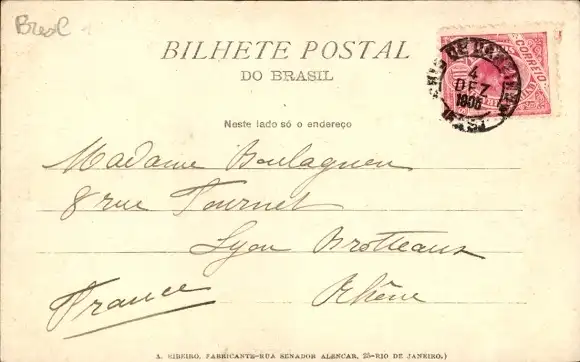 Bresl
BILHETE POSTAL
DO BRASIL
CORREIO
4
DEZ
1906
Neste lado só o endereço
Madame Boulagnon
8 rue Tournet
Lyon Brotteaux
France
Rhône
A. RIBEIRO, FABRICANTE-RUA SENADOR ALENCAR, 25-RIO DE JANEIRO.)